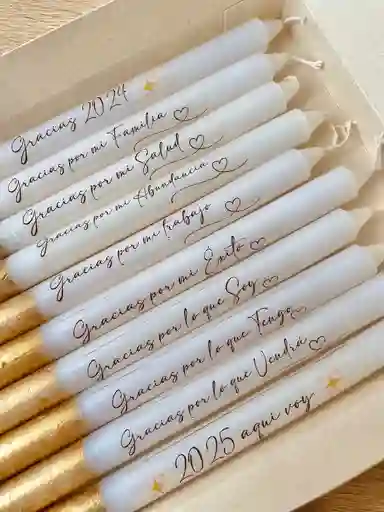 Gracias 2024
Gracias por mi Familia
Gracias por mi Salud
Gracias por mi Abundancia
Gracias por mi trabajo
Gracias por mi Éxito
Gracias por lo que Soy
Gracias por lo que Tengo
Gracias por lo que Vendrá
2025 aqui voy